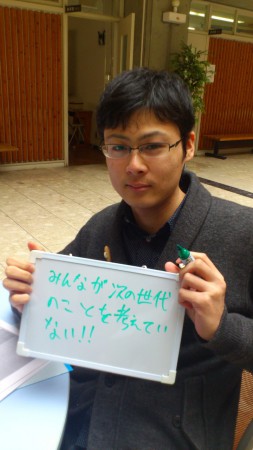 みんなが次の世代
のことを考えてい
ない!!